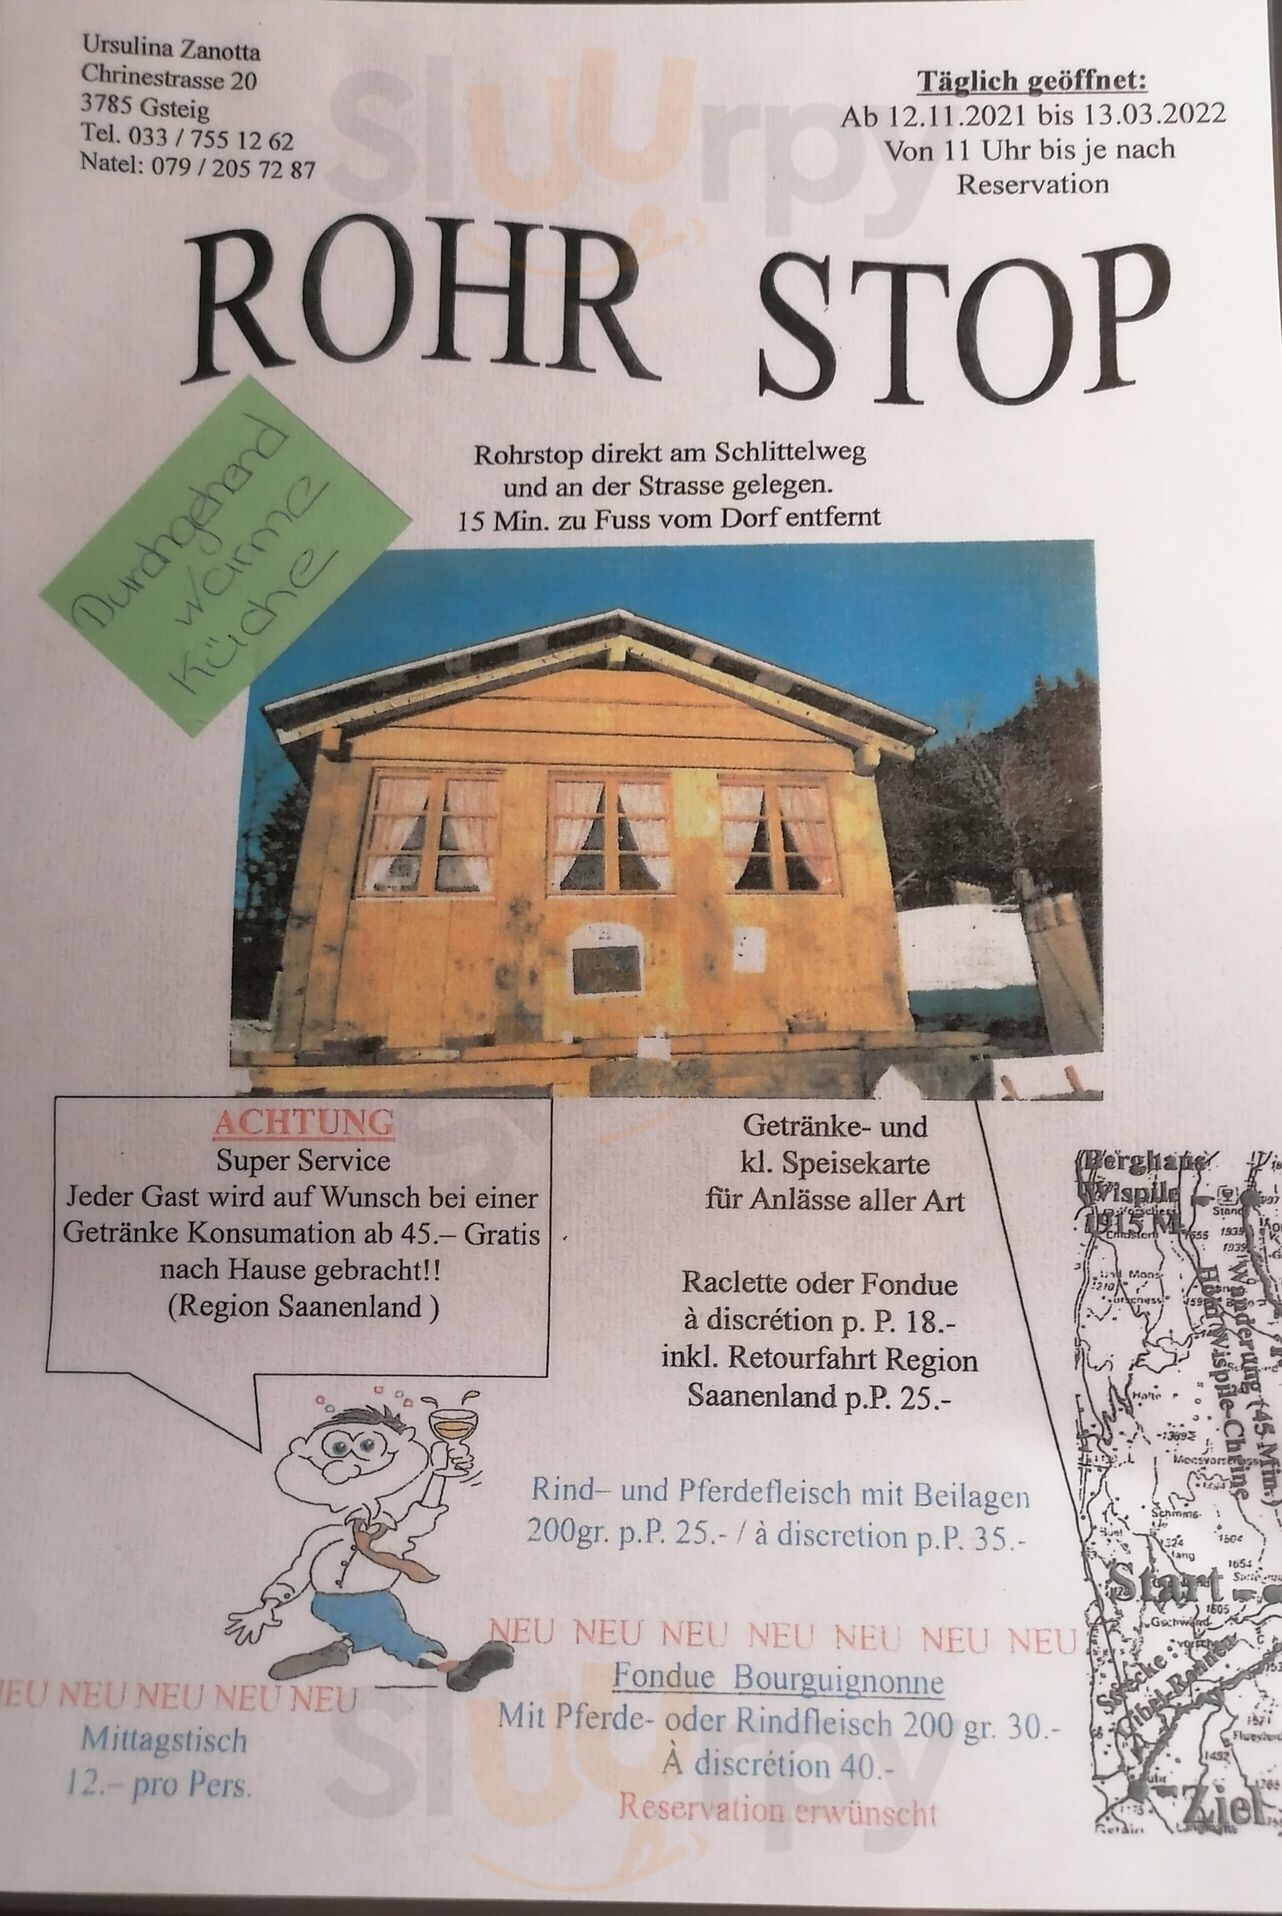 Ursulina Zanotta
Chrinestrasse 20
3785 Gsteig
Tel. 033 / 755 12 62
Natel: 079 / 205 72 87
Täglich geöffnet:
Ab 12.11.2021 bis 13.03.2022
Von 11 Uhr bis je nach
Reservation
Sluurpy
ROHR STOP
Durchgehend
warme
Küche
Rohrstop direkt am Schlittelweg
und an der Strasse gelegen.
15 Min. zu Fuss vom Dorf entfernt
ACHTUNG
Super Service
Jeder Gast wird auf Wunsch bei einer
Getränke Konsumation ab 45.– Gratis
nach Hause gebracht!!
(Region Saanenland )
Getränke- und
kl. Speisekarte
für Anlässe aller Art
Raclette oder Fondue
à discrétion p. P. 18.-
inkl. Retourfahrt Region
Saanenland p.P. 25.-
Rind– und Pferdefleisch mit Beilagen
200gr. p.P. 25.- / à discretion p.P. 35.-
NEU NEU NEU NEU NEU NEU NEU
Fondue Bourguignonne
Mit Pferde- oder Rindfleisch 200 gr. 30.-
À discrétion 40.-
Reservation erwünscht
NEU NEU NEU NEU NEU
Mittagstisch
12.– pro Pers.
Berghaus
Wispile
1915 M.
Wanderung (45 Min.)
Höhi Wispile-Chrine
Start
Strecke
Gibel-Rohner
Ziel
Sluurpy